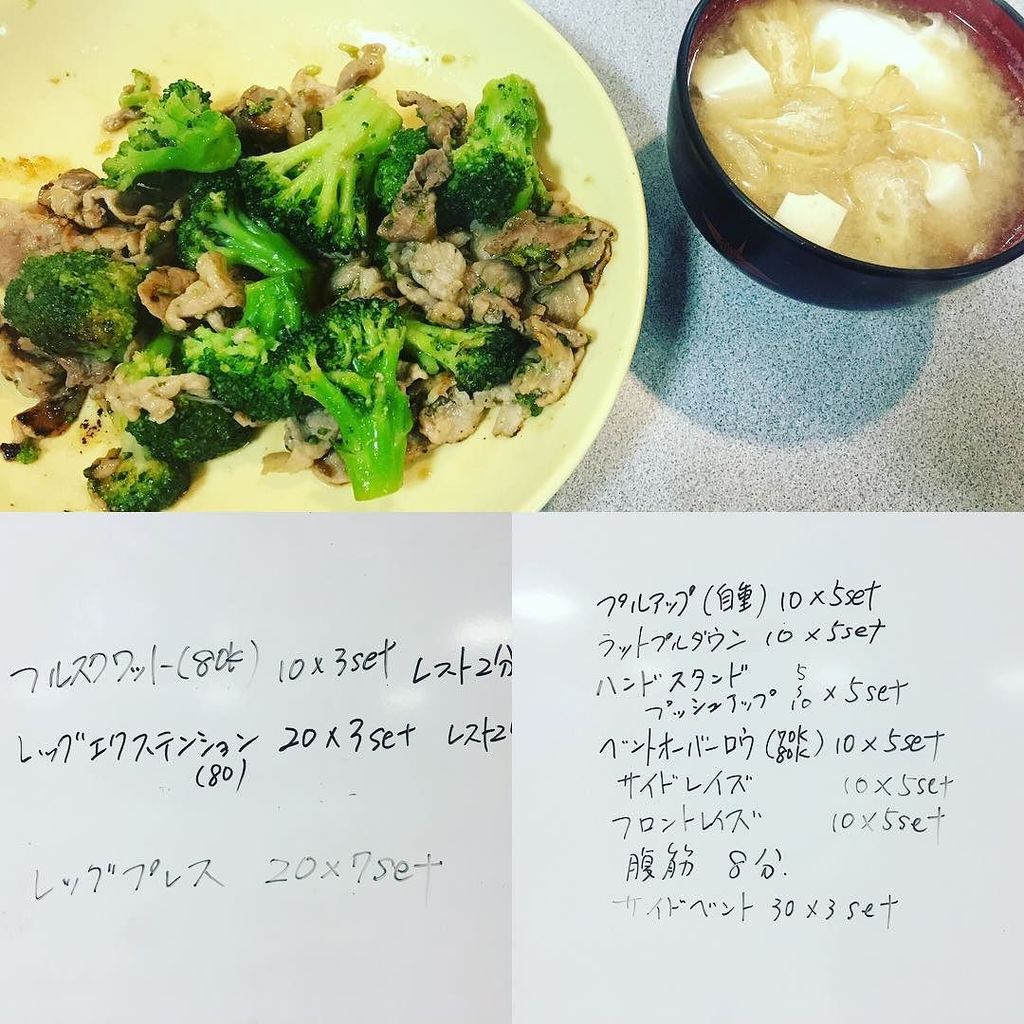 フルスクワット(80k) 10×3set レスト2分
レッグエクステンション 20×3set レスト2
(80)
レッグプレス 20×7set
プルアップ(自重) 10×5set
ラットプルダウン 10×5set
ハンドスタンド 5
プッシュアップ 10 ×5set
ベントオーバーロウ(70k 80k) 10×5set
サイドレイズ 10×5set
フロントレイズ 10×5set
腹筋 8分.
サイドベント 30×3set